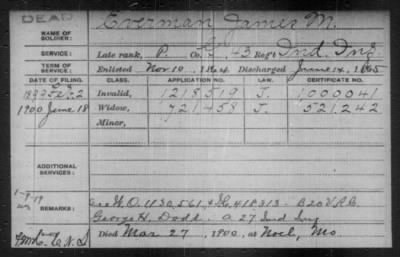 DEAD
NAME OF SOLDIER: Everman James M.
SERVICE: Late rank, P. Co. 43 Regt Ind. Inf.
TERM OF SERVICE: Enlisted Nov 10, 1864 Discharged June 14, 1865
DATE OF FILING. CLASS. APPLICATION NO. LAW. CERTIFICATE NO.
Invalid, 1218519 J. 1,000041
1900 June 18 Widow, 721458 J. 521,242
Minor,
ADDITIONAL SERVICES:
REMARKS: W.O. 1130,561 & 418313 - B 20 V.R.C.
George H. Dodd. A 27 Ind Inf
Died Mar 27, 1900, at Noel, Mo.